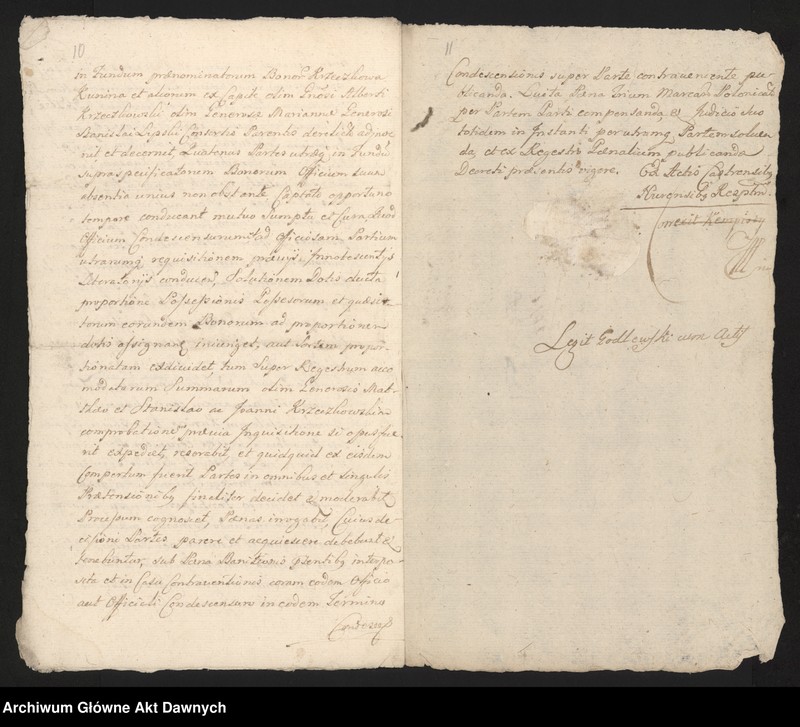 10
in Fundum prænominatorum Bonor Krzeczkowa
Kunina et aliorum ex Capite olim Gnosi Alberti
Krzeczkowski olim Generosæ Mariannæ Generosi
Stanislai Laski Consortis Parentis derelict
nit et decernit, Quatenus Partes utræq in Fundū
supraspecificatorum Bonorum Officium suum
absentia unius non obstante Captato opportuno
tempore conducant mutuo Sumptu et Cura, Quod
Officium Condescensurum ad officiosam Partium
utrarumq requisitionem prævijs Innotescentijs
Literatorijs Solutionem Dotis ducta
proportione Possessionis Possessorum et quæsi
torum eorundem Bonorum ad proportionem
dotis injunget, aut Sortem propor
tionatam exdividet, tum Super Regestrum acco
modatarum Summarum olim Generosis Mat
thæo et Stanislao ac Joanni Krzeczkowskim
comprobatione prævia Inquisitione si opus fue
rit expediet, et quidquid ex eisdem
Compertum fuerit Partes in omnibus et singulis
Prætensionibq finaliter decidet & moderabit
Processum cognoscet, Pænas irrogabit, Cuius de
cisioni Partes parere et acquiescere debebunt &
tenebuntur, sub Pæna Banitionis pntibq interpo
sita et in Casu Contraventionis coram eodem Officio
aut Officiali Condescensuro in eodem Termino
11
Condescensionis super Parte contraveniente pu
blicanda. Luita Pæna trium Marcar Polonical
per Partem Parti compensanda & Judicio suo
totidem in Instanti per utramq Partem soluen
da, et ex Regestro Pænalium publicanda
Decreti præsentis vigore. Ex Actis Castrensibq
Nurensibq Rczptm.
Correxit
Legit Godlewski cum Actis